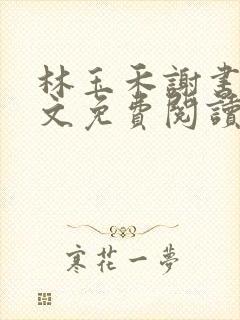 林玉禾謝書
文免費閱讀
寒花一夢